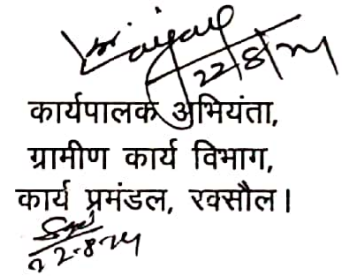 22/8/24
कार्यपालक अभियंता,
ग्रामीण कार्य विभाग,
कार्य प्रमंडल, रक्सौल।
22-8-24